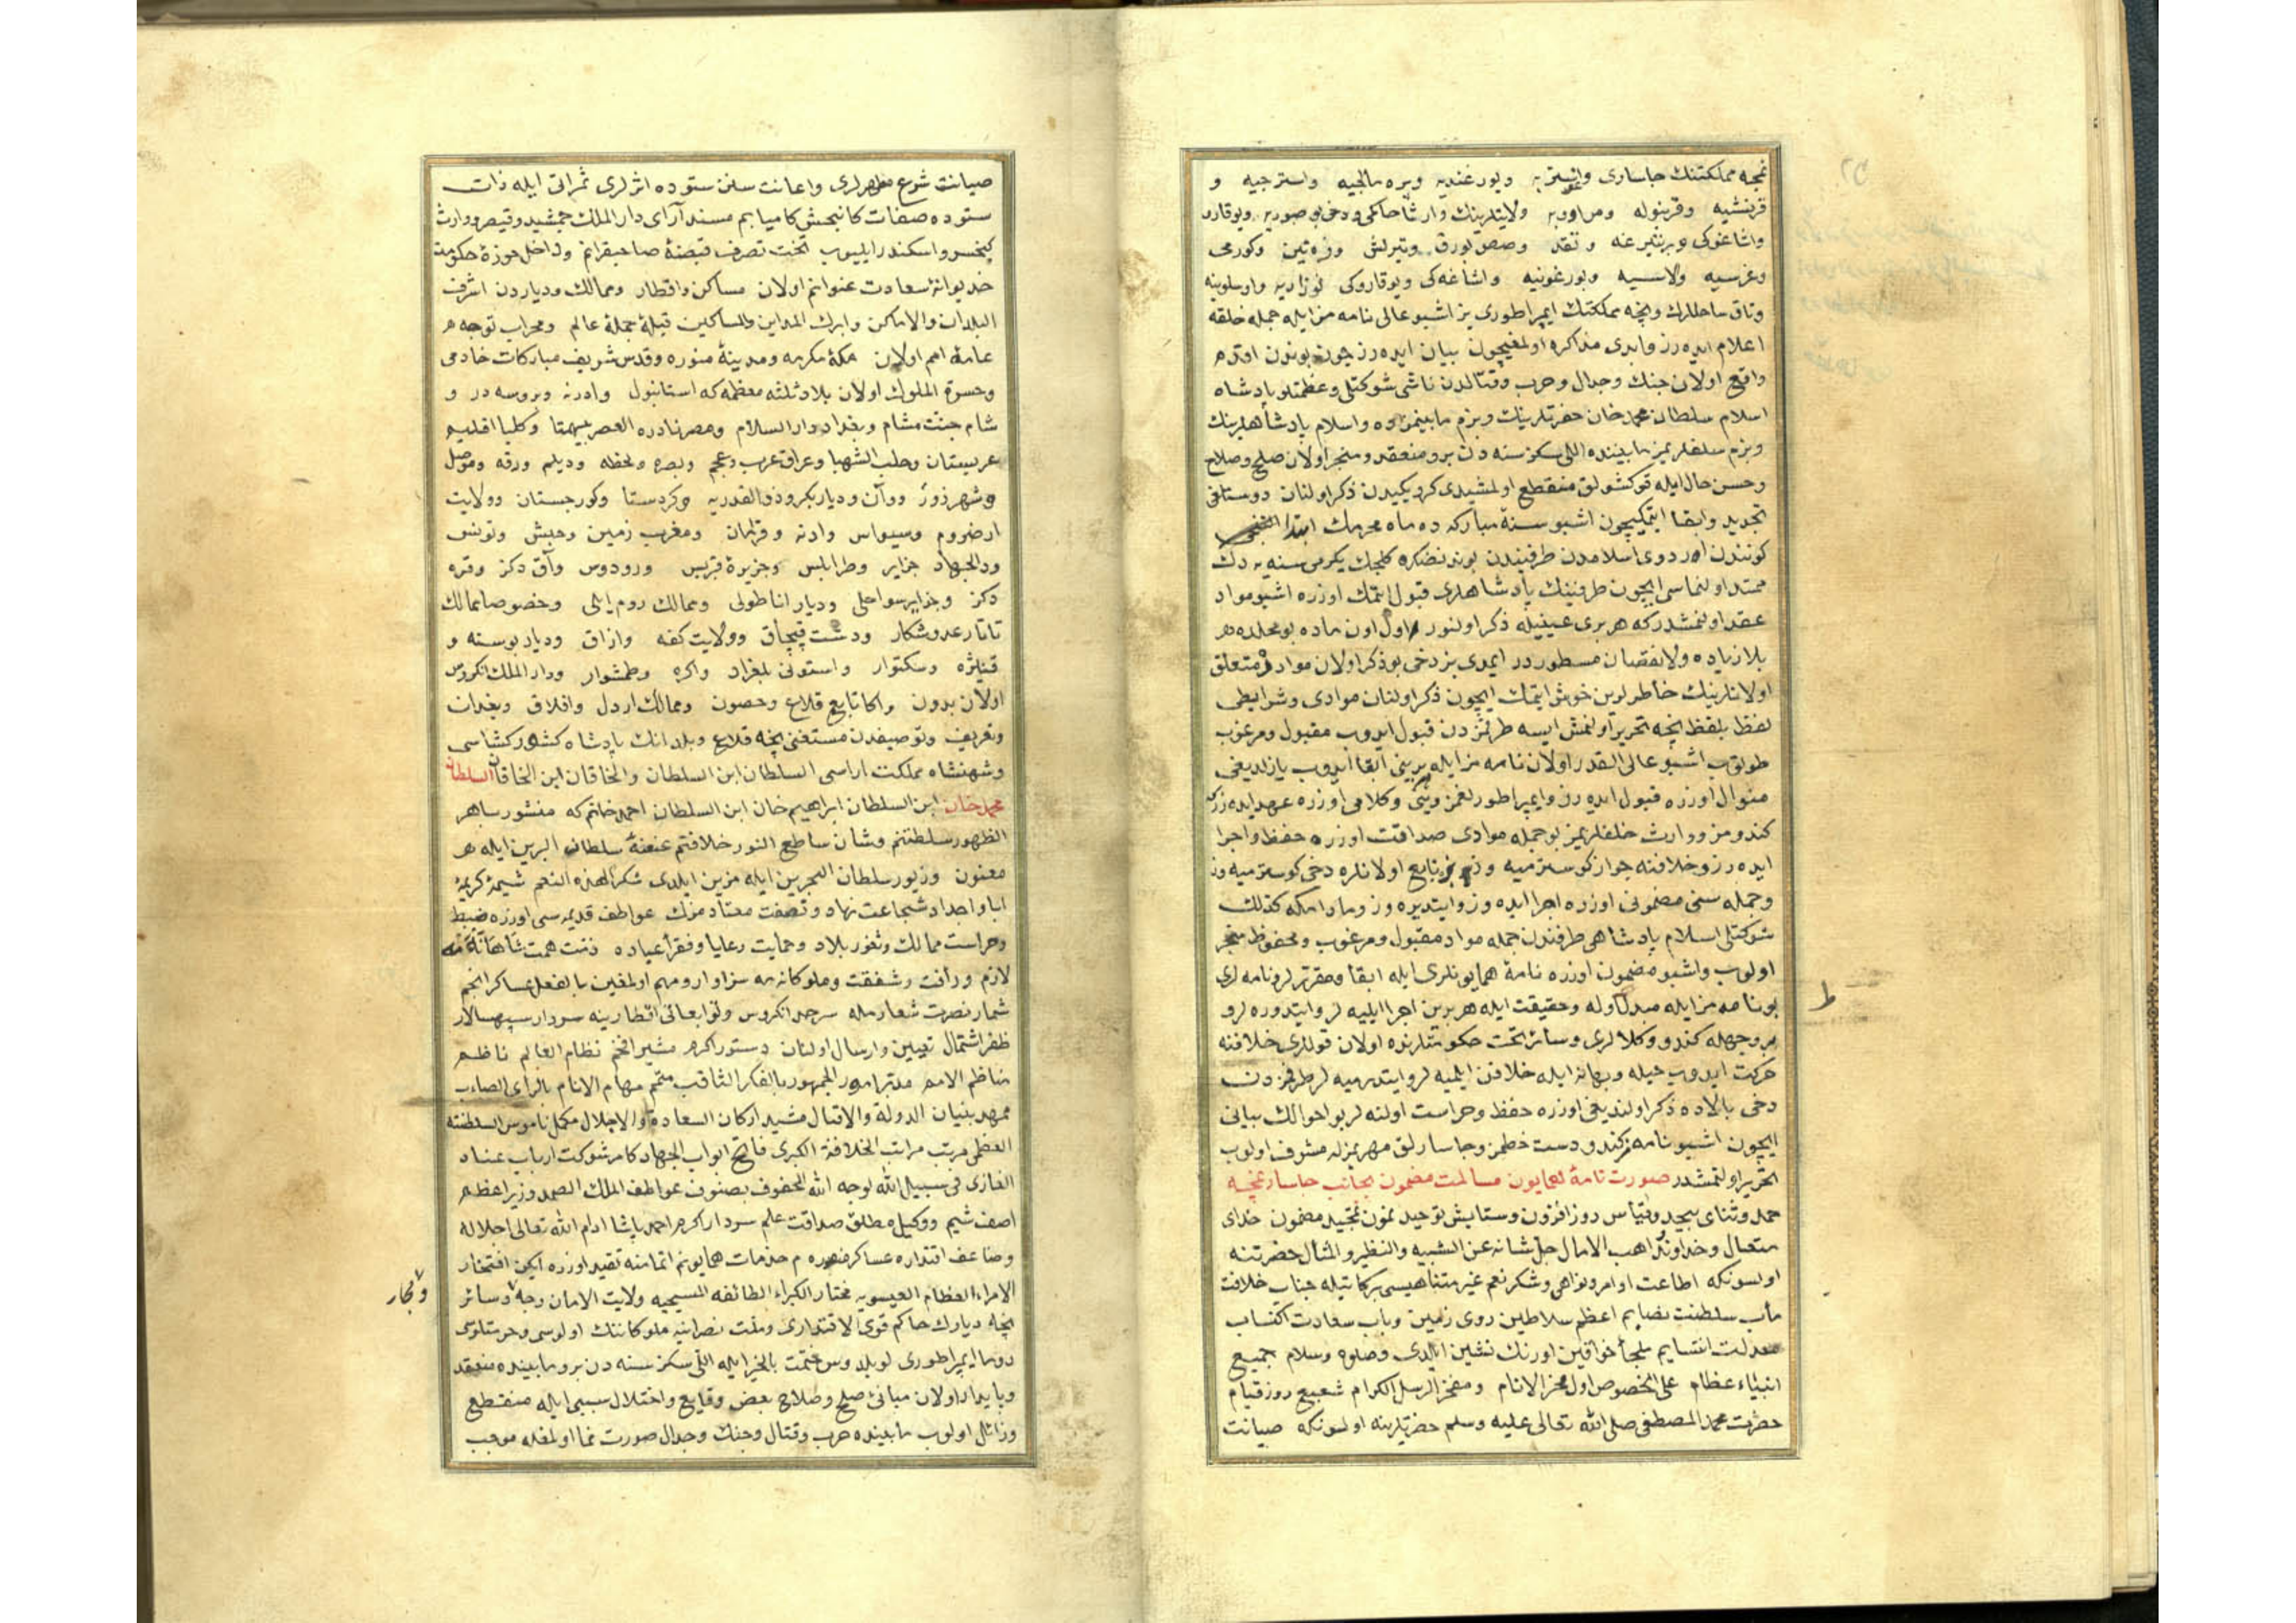 نمچه مملكتنك جاساری و اوستریه و بورغندیه و بره بانجیه و استرجیه و
قرنشیه و قرینوله و مراویه ولایتلرینك وارشا حاكمی و دخی بوصوریه و یوقارو
واشاغوكی
وغرسیه ولاسیه و بورغونیه و اشاغه كی و یوقاروكی لوزاریه و اوسلوینه
وتاق ساحللرك ونیچه مملكتنك ایمپراطوری یز اشبو عالی نامه مز ایله جمله خلقه
اعلام ایده رز و ابدی مذاكره اولمغیچون بیان ایده رز چون بوندن اقدم
واقع اولان جنك وجدال وحرب وقتالدن ناشی شوكتلی وعظمتلو پادشاه
اسلام سلطان محمد خان حضرتلرینك وبزم مابینمزده واسلام پادشاهلرینك
وبزم سلفلریمز مابیننده اللی سكز سنه دن برو منعقد ومنجر اولان صلح وصلاح
وحسن حال ایله قوكشولق منقطع اولمشیدی كرو یكیدن ذكر اولنان دوستلغی
تجدید وابقا ایتمكیچون اشبو سنۀ مباركه ده ماه محرمك ابتدا
كونندن اوردوی اسلامدن طرفیندن بوندنصكره كلجك یكرمی سنه یه دك
ممتد اولنماسی ایچون طرفینك پادشاهلری قبول ایتمك اوزره اشبو مواد
عقد اولنمشدركه هر بری عینیله ذكر اولنور اول اون ماده بو محلده در
بلا زیاده ولا نقصان مسطوردر ایمدی بز دخی بو ذكر اولان مواده متعلق
اولانلرینك خاطرلرین خوش ایتمك ایچون ذكر اولنان موادی وشرایطی
لفظ بلفظ نیجه تحریر اولنمش ایسه طرفمزدن قبول ایدوب مقبول ومرغوب
طوتوب اشبو عالی القدر اولان نامه مز ایله بربنی ابقا ایدوب یازلدیغی
منوال اوزره قبول ایده رز وایمپراطورلغمز وكلامی اوزره عهد ایده رزكه
كندومز ووارث خلفلریمز بو جمله موادی صداقت اوزره حفظ واجرا
ایده رز وخلافنه جواز كوسترمیه وز وبزه تابع اولانلره دخی كوسترمیه وز
وجمله سنی مضمونی اوزره اجرا ایده وز وایتدیره وز ومادامكه كذلك
شوكتلی اسلام پادشاهی طرفندن جمله مواد مقبول ومرغوب ومحفوظ منجر
اولوب واشبو مضمون اوزره نامۀ همایونلری ایله ابقا ومقرر لر ونامه لری
بو نامه مز ایله مبدل اوله وحقیقت ایله هر برین اجرا ایلیه لر وایتدوره لر و
بر وجهله كندو وكلالری وسائر تحت حكومتلرنده اولان قوللری خلافنه
حركت ایدوب حیله وبهانه ایله خلافن ایلمیه لر وایتدرمیه لر طرفمزدن
دخی بالاده ذكر اولندیغی اوزره حفظ وحراست اولنه لر بو احوالك بیانی
ایچون اشبو نامه مز كندو دست خطمز وجاسارلق مهریمزله مشرف اولوب
تحریر اولنمشدر صورت نامۀ همایون مسالمت مضمون بجانب جاسار نمچه
حمد وثنای بیحد وقیاس روز افزون وستایش توحید نمون تمجید مضمون خدای
متعال وخداوند واهب الامال جل شانه عن الشبیه والنظیر والمثال حضرتنه
اولسونكه اطاعت اوامر ونواهی وشكر نعم غیر متناهیسی بركاتیله جناب خلافت
مأب سلطنت نصابم اعظم سلاطین روی زمین وباب سعادت اكتساب
معدلت انتسابم ملجأ خواقین اورنك نشین ایلدی وصلوة وسلام جمیع
انبیاء عظام علی الخصوص اول فخر الانام ومفخر الرسل الكرام شفیع روز قیام
حضرت محمد المصطفی صلی الله تعالی علیه وسلم حضرتلرینه اولسونكه صیانت
ط
صیانت شرع مطهرلری واعانت سنن ستوده اثرلری ثمراتی ایله ذات
ستوده صفات كامبخش كامیابم مسند آرای دار الملك جمشید وقیصر ووارث
كیخسرو واسكندر ایلیوب تحت تصرف قبضۀ صاحبقرانم وداخل حوزۀ حكومت
خدیوانۀ سعادت عنوانم اولان مساكن واقطار وممالك ودیاردن اشرف
البلدان والاماكن وابرك المداین والمساكین قبلۀ جملۀ عالم ومحراب توجه
عامۀ امم اولان مكۀ مكرمه ومدینۀ منوره وقدس شریف مباركات خادمی
وحسرة الملوك اولان بلاد ثلثه معظمه كه استانبول وادرنه وبروسه در و
شام جنت مشام وبغداد دار السلام ومصر نادره العصر بیهمتا وكلیا اقلیم
عربستان وحلب الشهبا وعراق عرب وعجم وبصره ولحظه ودیلم ورقه وموصل
وشهرزور ووان ودیاربكر وذو القدریه وكردستان وكورجستان وولایت
ارضروم وسیواس وادنه وقرمان ومغرب زمین وحبش وتونس
ودالجهاد جزایر وطرابلس وجزیرۀ قبریس ورودوس وآق دكز وقره
دكز وجزایر سواحلی ودیار اناطولی وممالك روم ایلی وخصوصا ممالك
تاتار عدوشكار ودشت قپچاق وولایت كفه وازاق ودیار بوسنه و
قنیژه وسكتوار واستونی بلغراد واكره وطمشوار ودار الملك انكروس
اولان بدون واكا تابع قلاع وحصون وممالك اردل وافلاق وبغدان
وتعریف وتوصیفدن مستغنی نیجه قلاع وبلدانك پادشاه كشوركشاسی
وشهنشاه مملكت اراسی السلطان ابن السلطان والخاقان ابن الخاقان السلطان
محمد خان ابن السلطان ابراهیم خان ابن السلطان احمد خانم كه منشور ساهر
الظهور سلطنتم وشان ساطع النور خلافتم عنعنۀ سلطان البرین ایله
معنون وزیور سلطان البحرین ایله مزین ایلدی شكرا لهذه النعم شیمۀ كریمۀ
ابا واجداد شجاعت نهاد ونصفت معتادمزك عواطف قدیمه سی اوزره ضبط
وحراست ممالك وثغور بلاد وحمایت رعایا وفقرا عباده ذمت همت شاهانه مه
لازم ورأفت وشفقت وملوكانه مه سزاوار ومهم اولمغین بالفعل عساكر انجم
شمار نصرت شعارمله سرحد انكروس وتوابعاتی اقطارینه سردار سپهسالار
ظفر اشتمال تعیین وارسال اولنان دستور اكرم مشیر افخم نظام العالم ناظم
مناظم الامم مدبر امور الجمهور بالفكر الثاقب متمم مهام الانام بالرای الصائب
ممهد بنیان الدولة والاقبال مشید اركان السعادة والاجلال مكمل ناموس السلطنة
العظمی مرتب مراتب الخلافة الكبری فاتح ابواب الجهاد كاسر شوكت ارباب عناد
الغازی فی سبیل الله لوجه الله المحفوف بصنوف عواطف الملك الصمد وزیر اعظم
اصف شیم ووكیل مطلق صداقت علم سردار اكرم احمد پاشا ادام الله تعالی اجلاله
وضاعف اقتداره عساكر منصوره م خدمات همایونم اتمامنه تقید اوزره ایكن افتخار
الامراء العظام العیسویه مختار الكبراء الطائفه المسیحیه ولایت الامان وچه وسائر
نیجه دیارك حاكم قوی الاقتداری وملت نصرانیه ملوكاننك اولوسی وحرمتلوسی
روما ایمپراطوری لوپلدوس ختمت بالخیر ایله اللی سكز سنه دن برو مابینده منعقد
وپایدار اولان مبانئ صلح وصلاح بعض وقایع واختلال سببی ایله منقطع
وزائل اولوب مابینده حرب وقتال وجنك وجدال صورت نما اولمغله موجب
ومجار